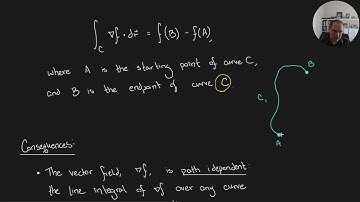 ∫_C ∇f · dr⃗ = f(B) - f(A),
where A is the starting point of curve C,
and B is the endpoint of curve C.
B
C₁
A
Consequences:
• The vector field, ∇f, is path independent:
the line integral of ∇f over any curve